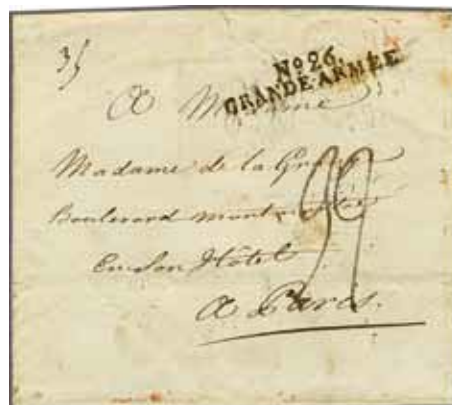 35
No 26.
GRANDE-ARMÉE
A Madame
Madame de la
Boulevard
En Son Hôtel
A Paris.